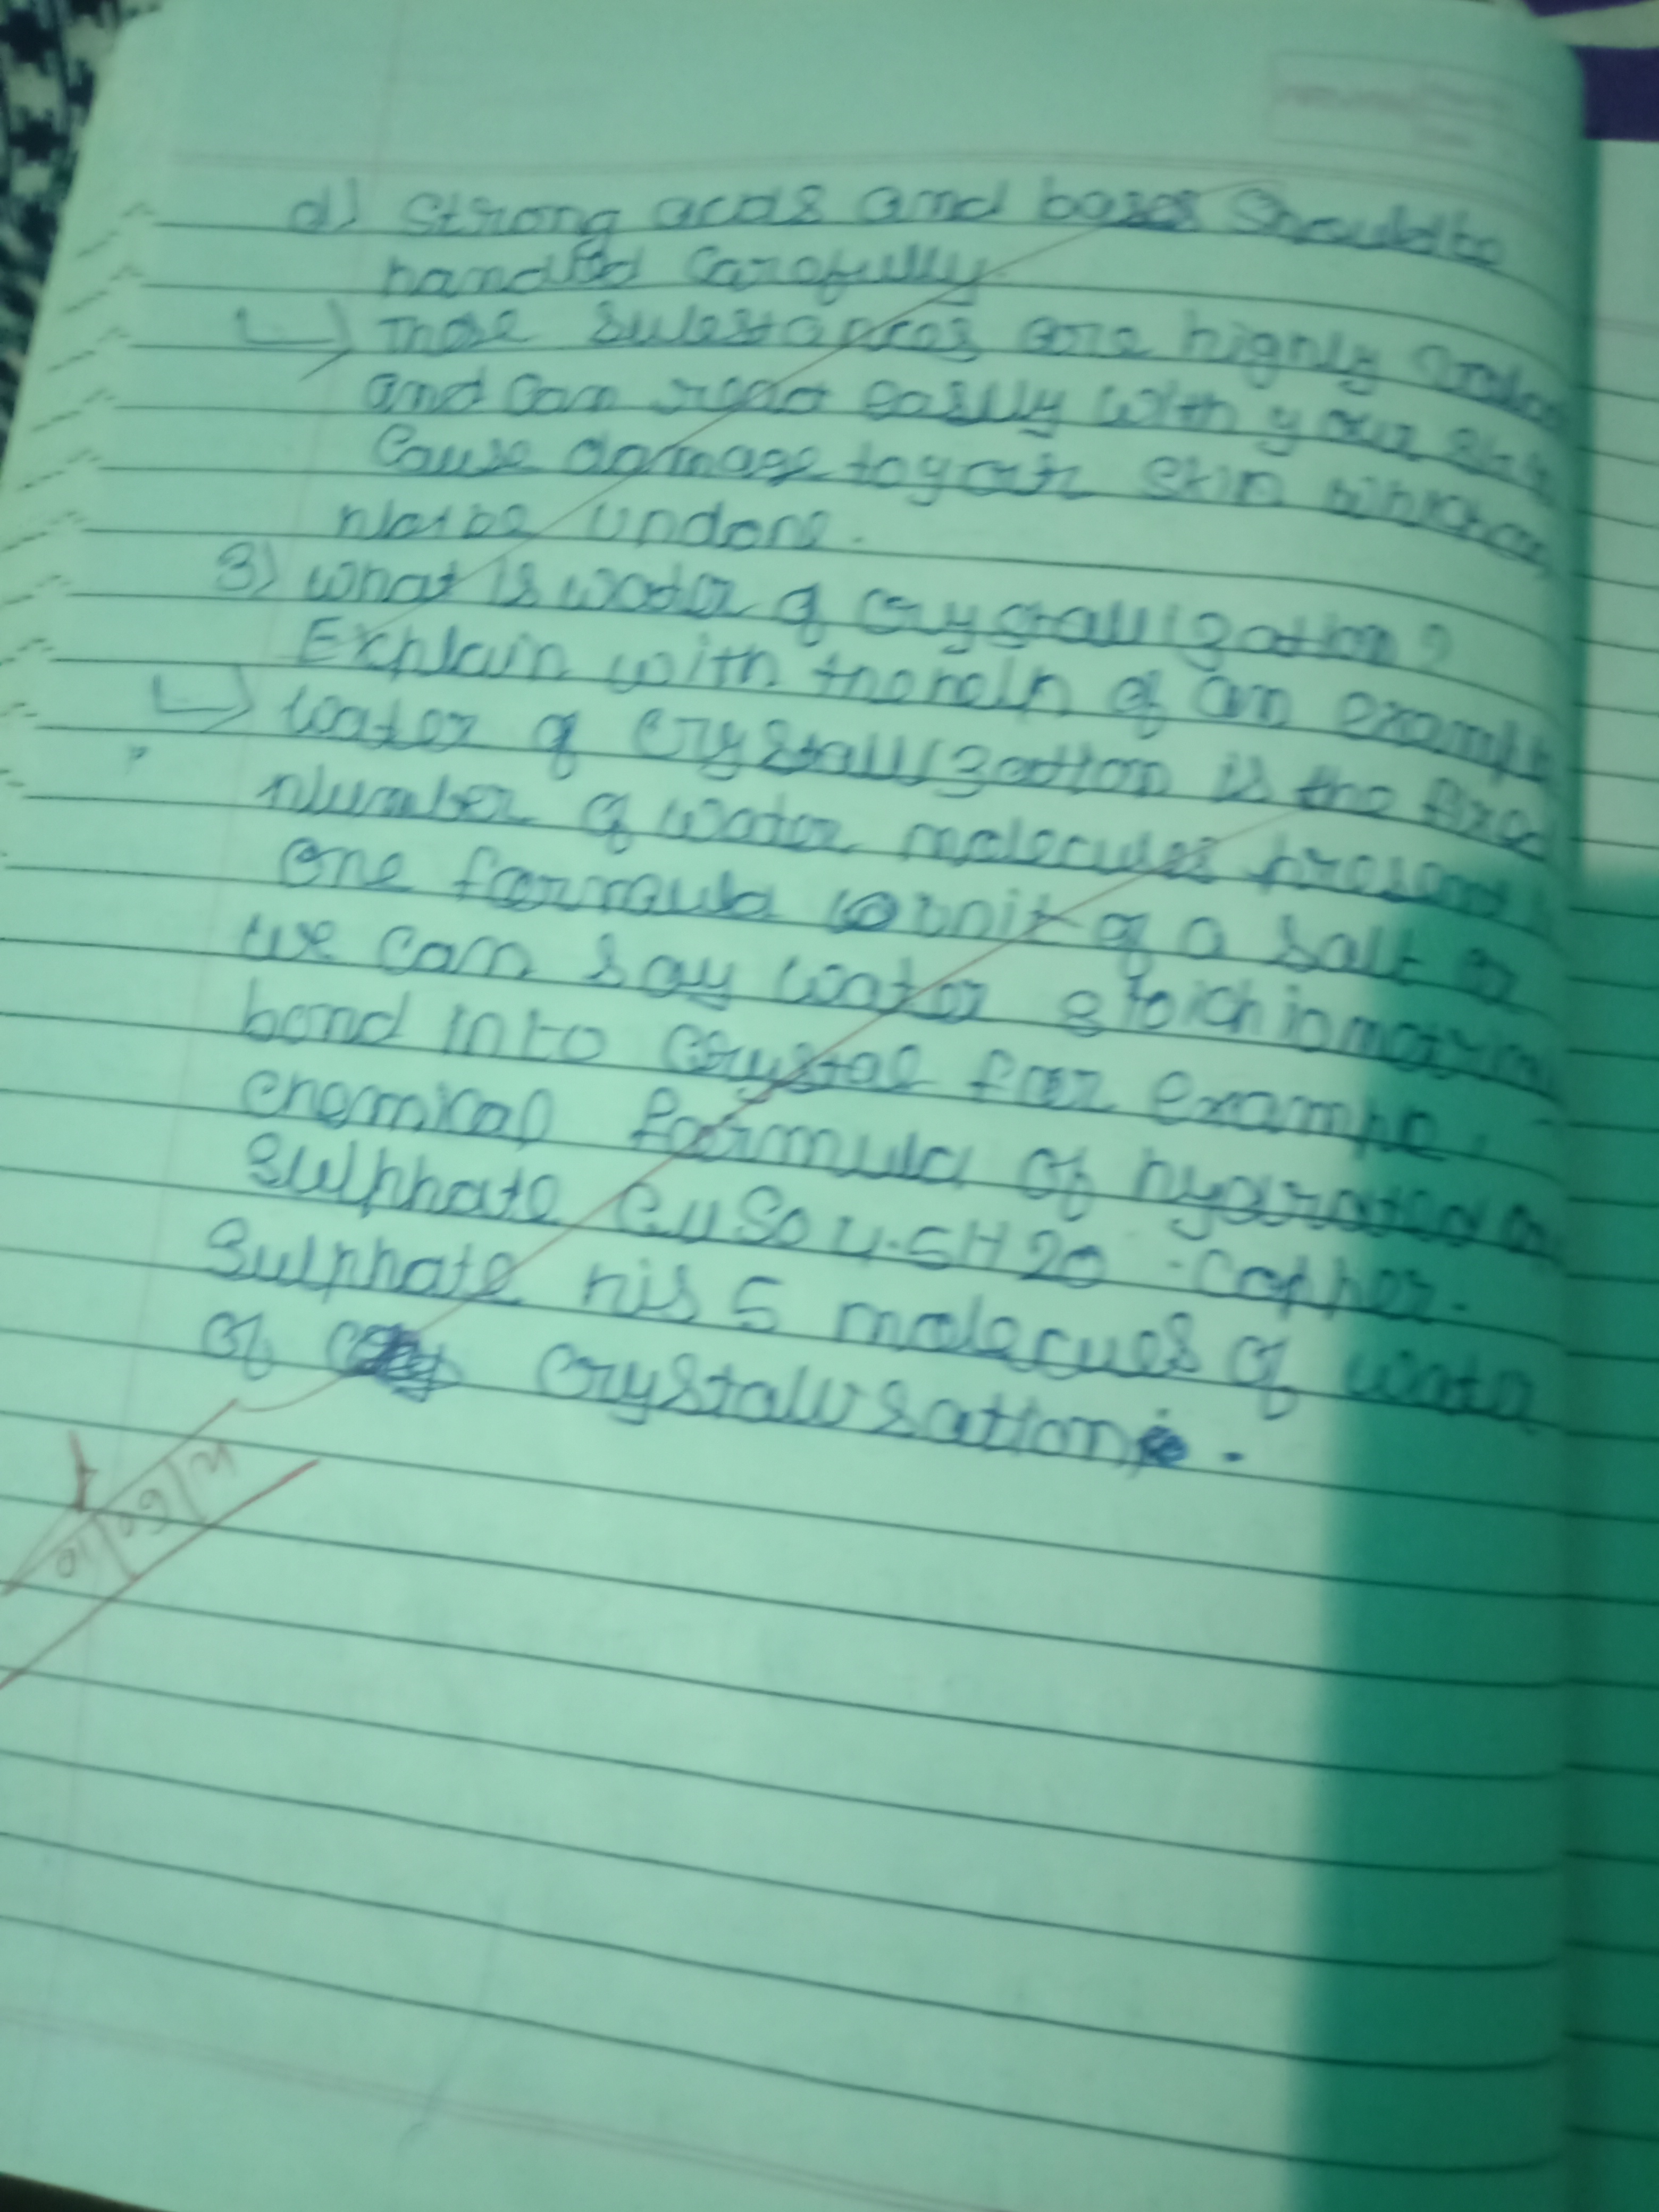 d) Strong acids and bases Should be
handled Carefully
These Substances are highly
and can react easily with your
Cause damage to your skin which can
not be undone.
3) What is water of Crystallization?
Explain with the help of an example
Water of Crystallization is the fixed
Number of water molecules present
One formula unit of a salt or
we can say water
bond into Crystal for example.
chemical formula of hydrated
Sulphate CuSO4.5H2O - Copper.
Sulphate his 5 molecues of water
of Crystallisation.